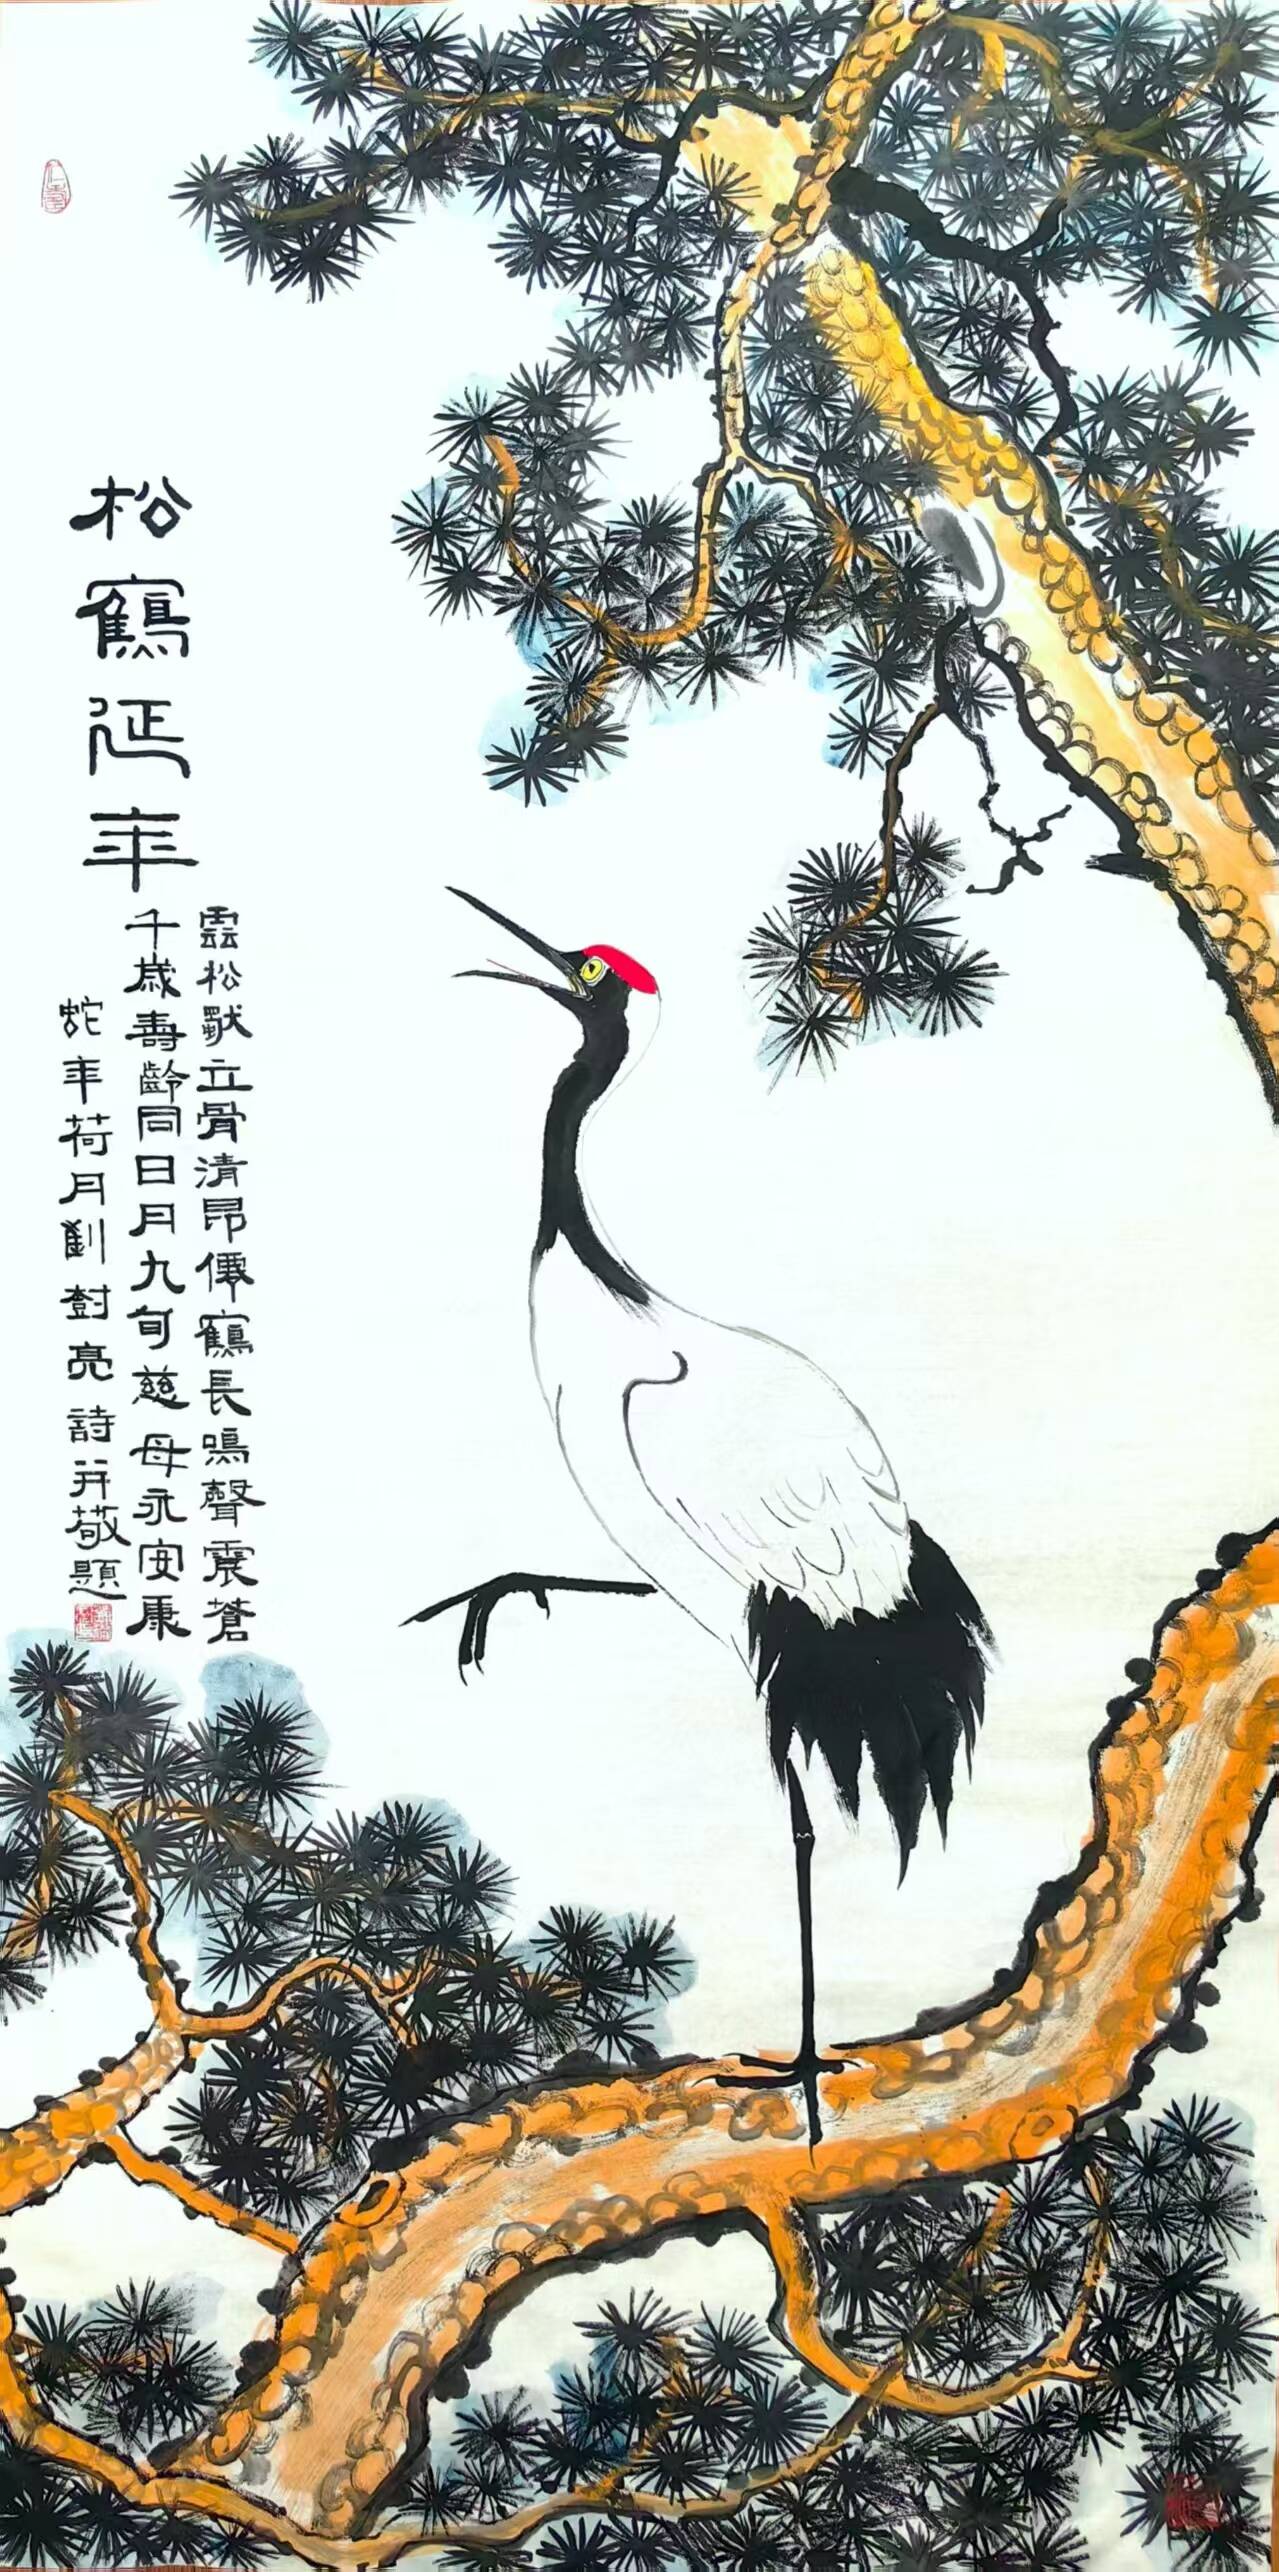 松鶴延年
松默立骨清昂僊鶴長鳴聲震蒼
千歲壽齡同日月九旬慈母永安康
蛇年荷月劉樹亮詩并敬題